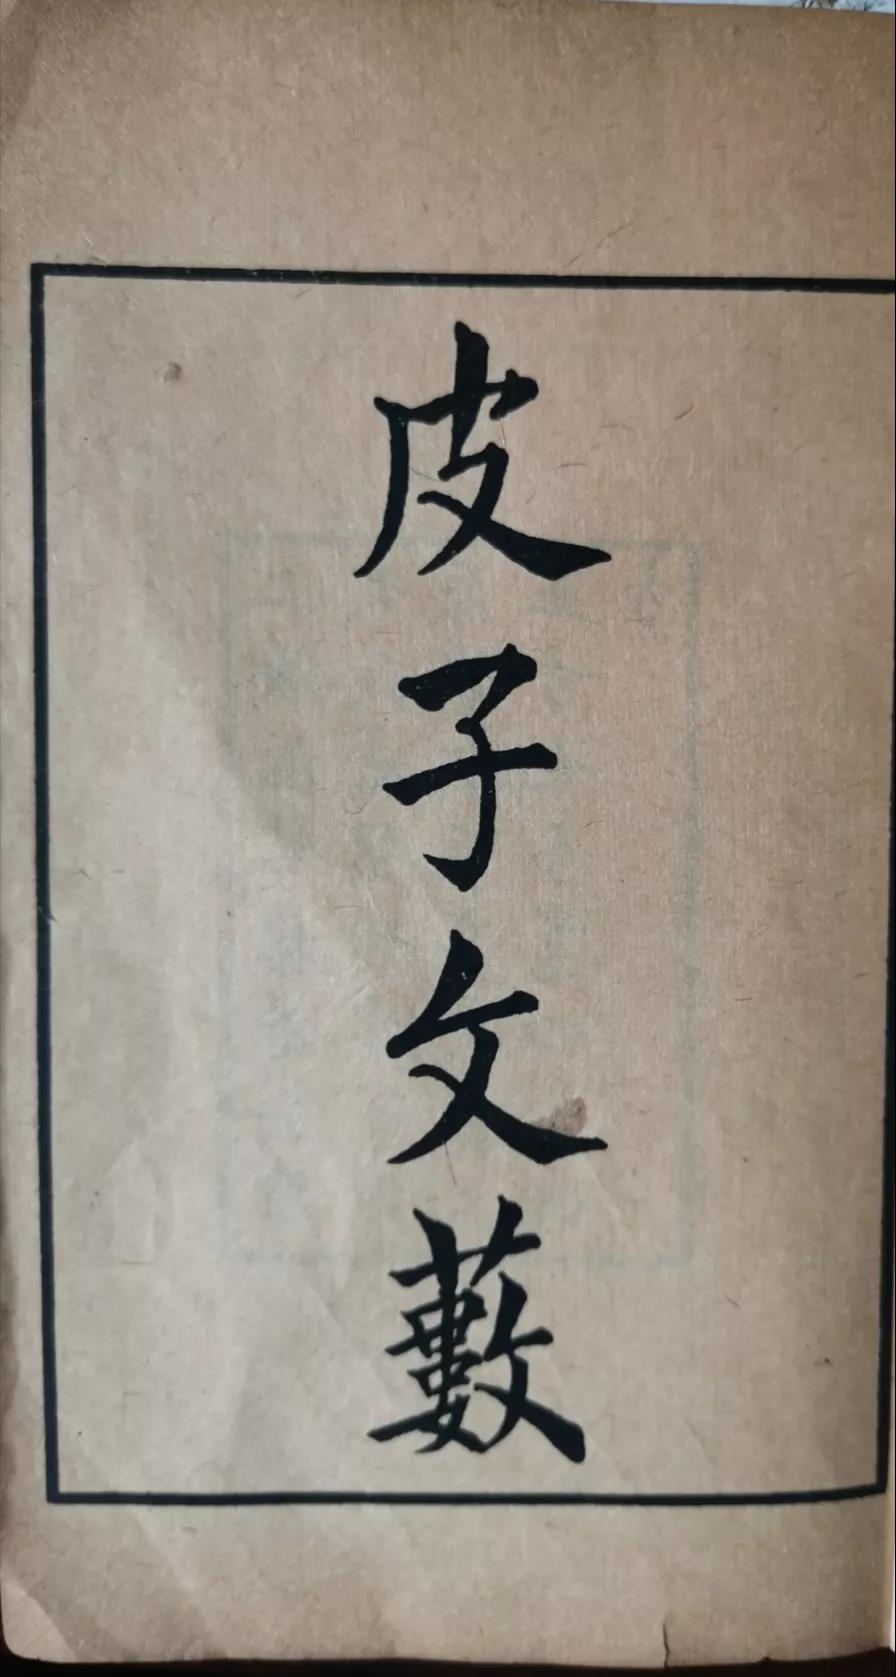 皮子文藪